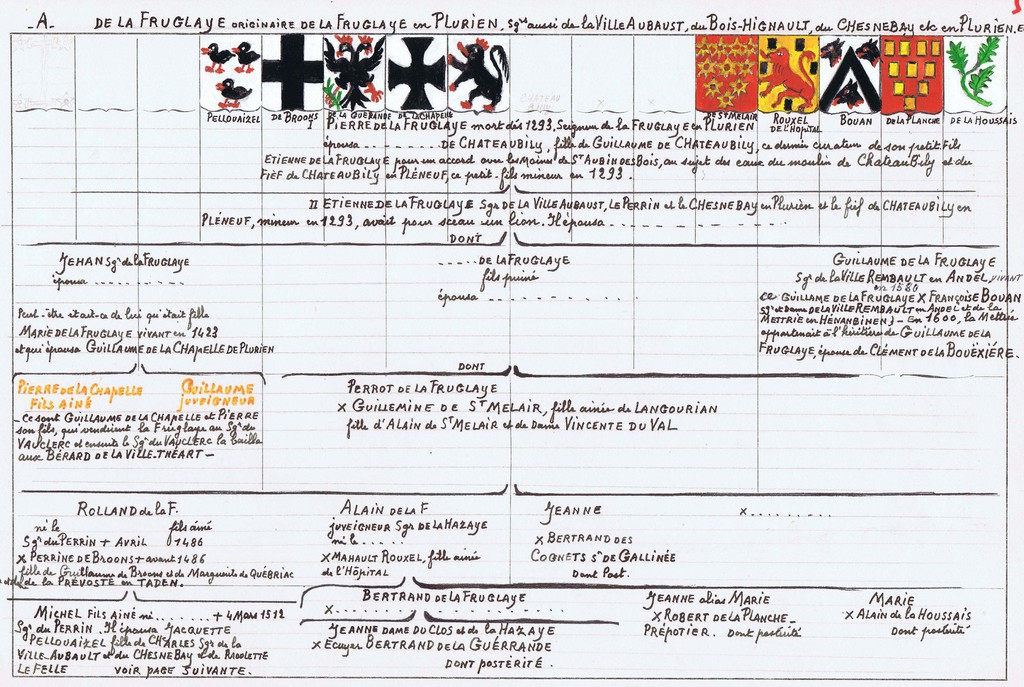 _A. DE LA FRUGLAYE ORIGINAIRE DE LA FRUGLAYE en PLURIEN, Sgrs aussi de la VILLE AUBAUST, du BOIS-HIGNAULT, du CHESNEBAY etc en PLURIEN. E
PELLOUAIZEL DE BROONS DE LA GUERANDE DE LA CHAPELLE DE ST MELAIR ROUXEL DE L'HOPITAL BOUAN DE LA PLANCHE DE LA HOUSSAIS
I PIERRE DE LA FRUGLAYE mort dès 1293, Seigneur de la FRUGLAYE en PLURIEN
épousa ........... DE CHATEAUBILY, fille de GUILLAUME DE CHATEAUBILY, ce dernier curateur de son petit-fils
ETIENNE DE LA FRUGLAYE pour un accord avec les Moines de ST AUBIN DES BOIS, au sujet des eaux du moulin de CHATEAUBILY et du
FIEF DE CHATEAUBILY en PLÉNEUF, ce petit-fils mineur en 1293.
II ETIENNE DE LA FRUGLAYE Sgr DE LA VILLE AUBAUST, LE PERRIN et le CHESNEBAY en Plurien et le fief de CHATEAUBILY en
PLÉNEUF, mineur en 1293, avait pour sceau un lion. Il épousa - - - - - - - - - -
DONT
JEHAN Sgr de la FRUGLAYE
épousa ...........
Peut-être était-ce de lui qu'était fille
MARIE DE LA FRUGLAYE vivant en 1423
et qui épousa GUILLAUME DE LA CHAPELLE DE PLURIEN
...... DE LA FRUGLAYE
fils puiné
épousa ...........
GUILLAUME DE LA FRUGLAYE
Sgr de la VILLE REMBAULT en ANDEL, vivant
en 1580
CE GUILLAME DE LA FRUGLAYE X FRANÇOISE BOUAN
sgr et Dame DE LA VILLE REMBAULT en ANDEL et de la
METTRIE en HÉNANBIHEN) - En 1600, la Mettrie
appartenait à l'héritière de GUILLAUME DE LA
FRUGLAYE, épouse de CLÉMENT DE LA BOUËXIÈRE.
DONT
PIERRE DE LA CHAPELLE
FILS AINÉ
GUILLAUME
JUVEIGNEUR
- Ce sont GUILLAUME DE LA CHAPELLE et PIERRE
son fils, qui vendirent la Fruglaye au Sgr du
VAUCLERC et ensuite le Sgr du VAUCLERC la bailla
aux BÉRARD DE LA VILLE-THÉART -
PERROT DE LA FRUGLAYE
X GUILLEMINE DE ST MELAIR, fille ainée de LANGOURIAN
fille d'ALAIN DE ST MELAIR et de Dame VINCENTE DU VAL
ROLLAND de la F.
né le fils ainé
Sgr du PERRIN + AVRIL 1486
X PERRINE DE BROONS + avant 1486
fille de Guillaume de Broons et de Marguerite de QUÉBRIAC
de la PRÉVOSTÉ en TADEN.
ALAIN DE LA F
JUVEIGNEUR Sgr DE LA HAZAYE
né le ......
X MAHAULT ROUXEL, fille ainée
de l'Hôpital
JEANNE X..........
X BERTRAND DES
COGNETS Sr DE GALLINÉE
Dont Post.
MICHEL FILS AINÉ né ...... + 4 Mars 1512
Sgr du PERRIN. Il épousa JACQUETTE
PELLOUAIZEL fille de CHARLES Sgr de la
VILLE AUBAULT et du CHESNEBAY et de RAOLETTE
LE FELLE VOIR PAGE SUIVANTE.
BERTRAND DE LA FRUGLAYE
X............
JEANNE DAME DU CLOS et de la HAZAYE
X Ecuyer BERTRAND DE LA GUÉRRANDE
DONT POSTÉRITÉ.
JEANNE alias MARIE
X ROBERT DE LA PLANCHE
PRÉPOTIER. dont postérité
MARIE
X ALAIN de la HOUSSAIS
Dont postérité